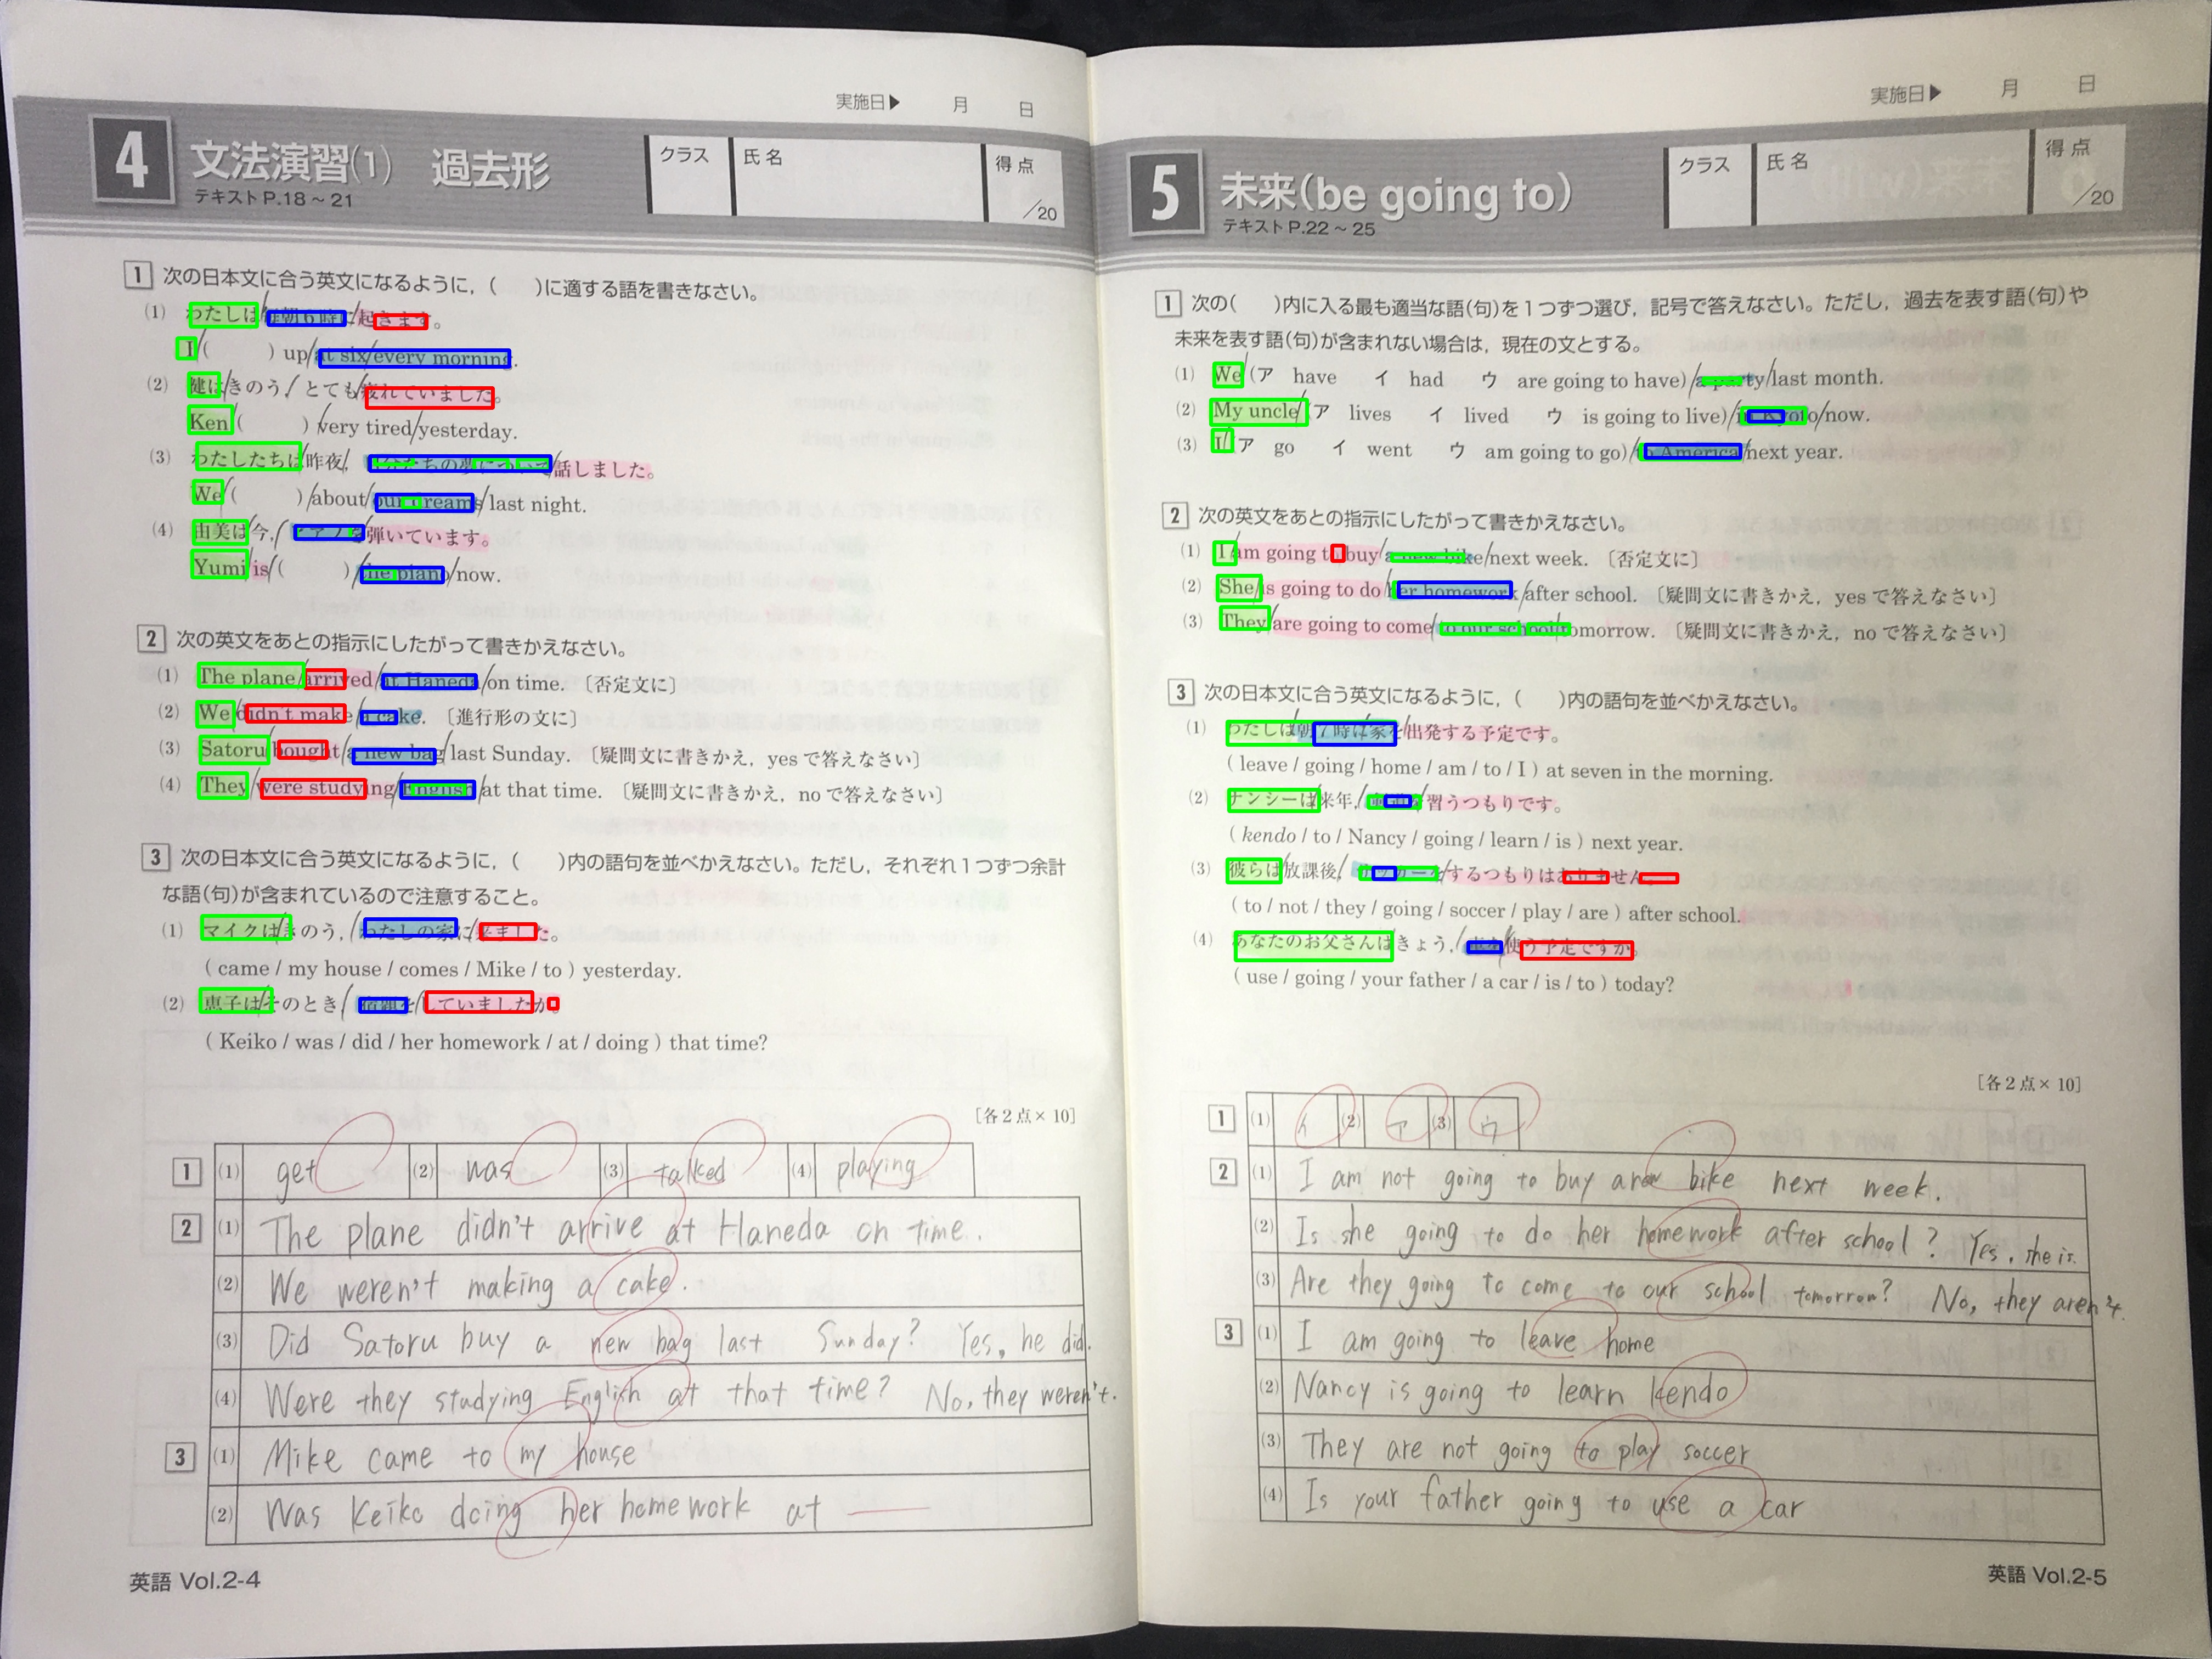 実施日▶ 月 日
4 文法演習(1) 過去形
テキストP.18~21
クラス 氏名 得点 /20
1 次の日本文に合う英文になるように,( )に適する語を書きなさい。
(1) わたしは/毎朝6時に/起きます。
I/( ) up/at six/every morning.
(2) 健は/きのう/とても/疲れていました。
Ken/( )/very tired/yesterday.
(3) わたしたちは/昨夜,/自分たちの夢について/話しました。
We/( )/about/our dreams/last night.
(4) 由美は/今,/ピアノを/弾いています。
Yumi/is/( )/the piano/now.
2 次の英文をあとの指示にしたがって書きかえなさい。
(1) The plane/arrived/at Haneda/on time. 〔否定文に〕
(2) We/didn't make/a cake. 〔進行形の文に〕
(3) Satoru/bought/a new bag/last Sunday. 〔疑問文に書きかえ, yesで答えなさい〕
(4) They/were studying/English/at that time. 〔疑問文に書きかえ, noで答えなさい〕
3 次の日本文に合う英文になるように,( )内の語句を並べかえなさい。ただし,それぞれ1つずつ余計
な語(句)が含まれているので注意すること。
(1) マイクは/きのう,/わたしの家に/来ました。
( came / my house / comes / Mike / to ) yesterday.
(2) 恵子は/そのとき/宿題を/していましたか。
( Keiko / was / did / her homework / at / doing ) that time?
[各2点×10]
1 (1) get (2) was (3) talked (4) playing
2 (1) The plane didn't arrive at Haneda on time.
(2) We weren't making a cake.
(3) Did Satoru buy a new bag last Sunday? Yes, he did.
(4) Were they studying English at that time? No, they weren't.
3 (1) Mike came to my house
(2) Was Keiko doing her homework at
英語 Vol.2-4
実施日▶ 月 日
5 未来(be going to)
テキストP.22~25
クラス 氏名 得点 /20
1 次の( )内に入る最も適当な語(句)を1つずつ選び,記号で答えなさい。ただし,過去を表す語(句)や
未来を表す語(句)が含まれない場合は,現在の文とする。
(1) We/(ア have イ had ウ are going to have)/a party/last month.
(2) My uncle/(ア lives イ lived ウ is going to live)/in Kyoto/now.
(3) I/(ア go イ went ウ am going to go)/to America/next year.
2 次の英文をあとの指示にしたがって書きかえなさい。
(1) I/am going to buy/a new bike/next week. 〔否定文に〕
(2) She/is going to do/her homework/after school. 〔疑問文に書きかえ, yesで答えなさい〕
(3) They/are going to come/to our school/tomorrow. 〔疑問文に書きかえ, noで答えなさい〕
3 次の日本文に合う英文になるように,( )内の語句を並べかえなさい。
(1) わたしは/朝7時に/家を/出発する予定です。
( leave / going / home / am / to / I ) at seven in the morning.
(2) ナンシーは/来年,/剣道を/習うつもりです。
( kendo / to / Nancy / going / learn / is ) next year.
(3) 彼らは/放課後/サッカーを/するつもりはありません。
( to / not / they / going / soccer / play / are ) after school.
(4) あなたのお父さんは/きょう,/車を/使う予定ですか。
( use / going / your father / a car / is / to ) today?
[各2点×10]
1 (1) イ (2) ア (3) ウ
2 (1) I am not going to buy a new bike next week.
(2) Is she going to do her homework after school? Yes, she is.
(3) Are they going to come to our school tomorrow? No, they aren't.
3 (1) I am going to leave home
(2) Nancy is going to learn kendo
(3) They are not going to play soccer
(4) Is your father going to use a car
英語 Vol.2-5